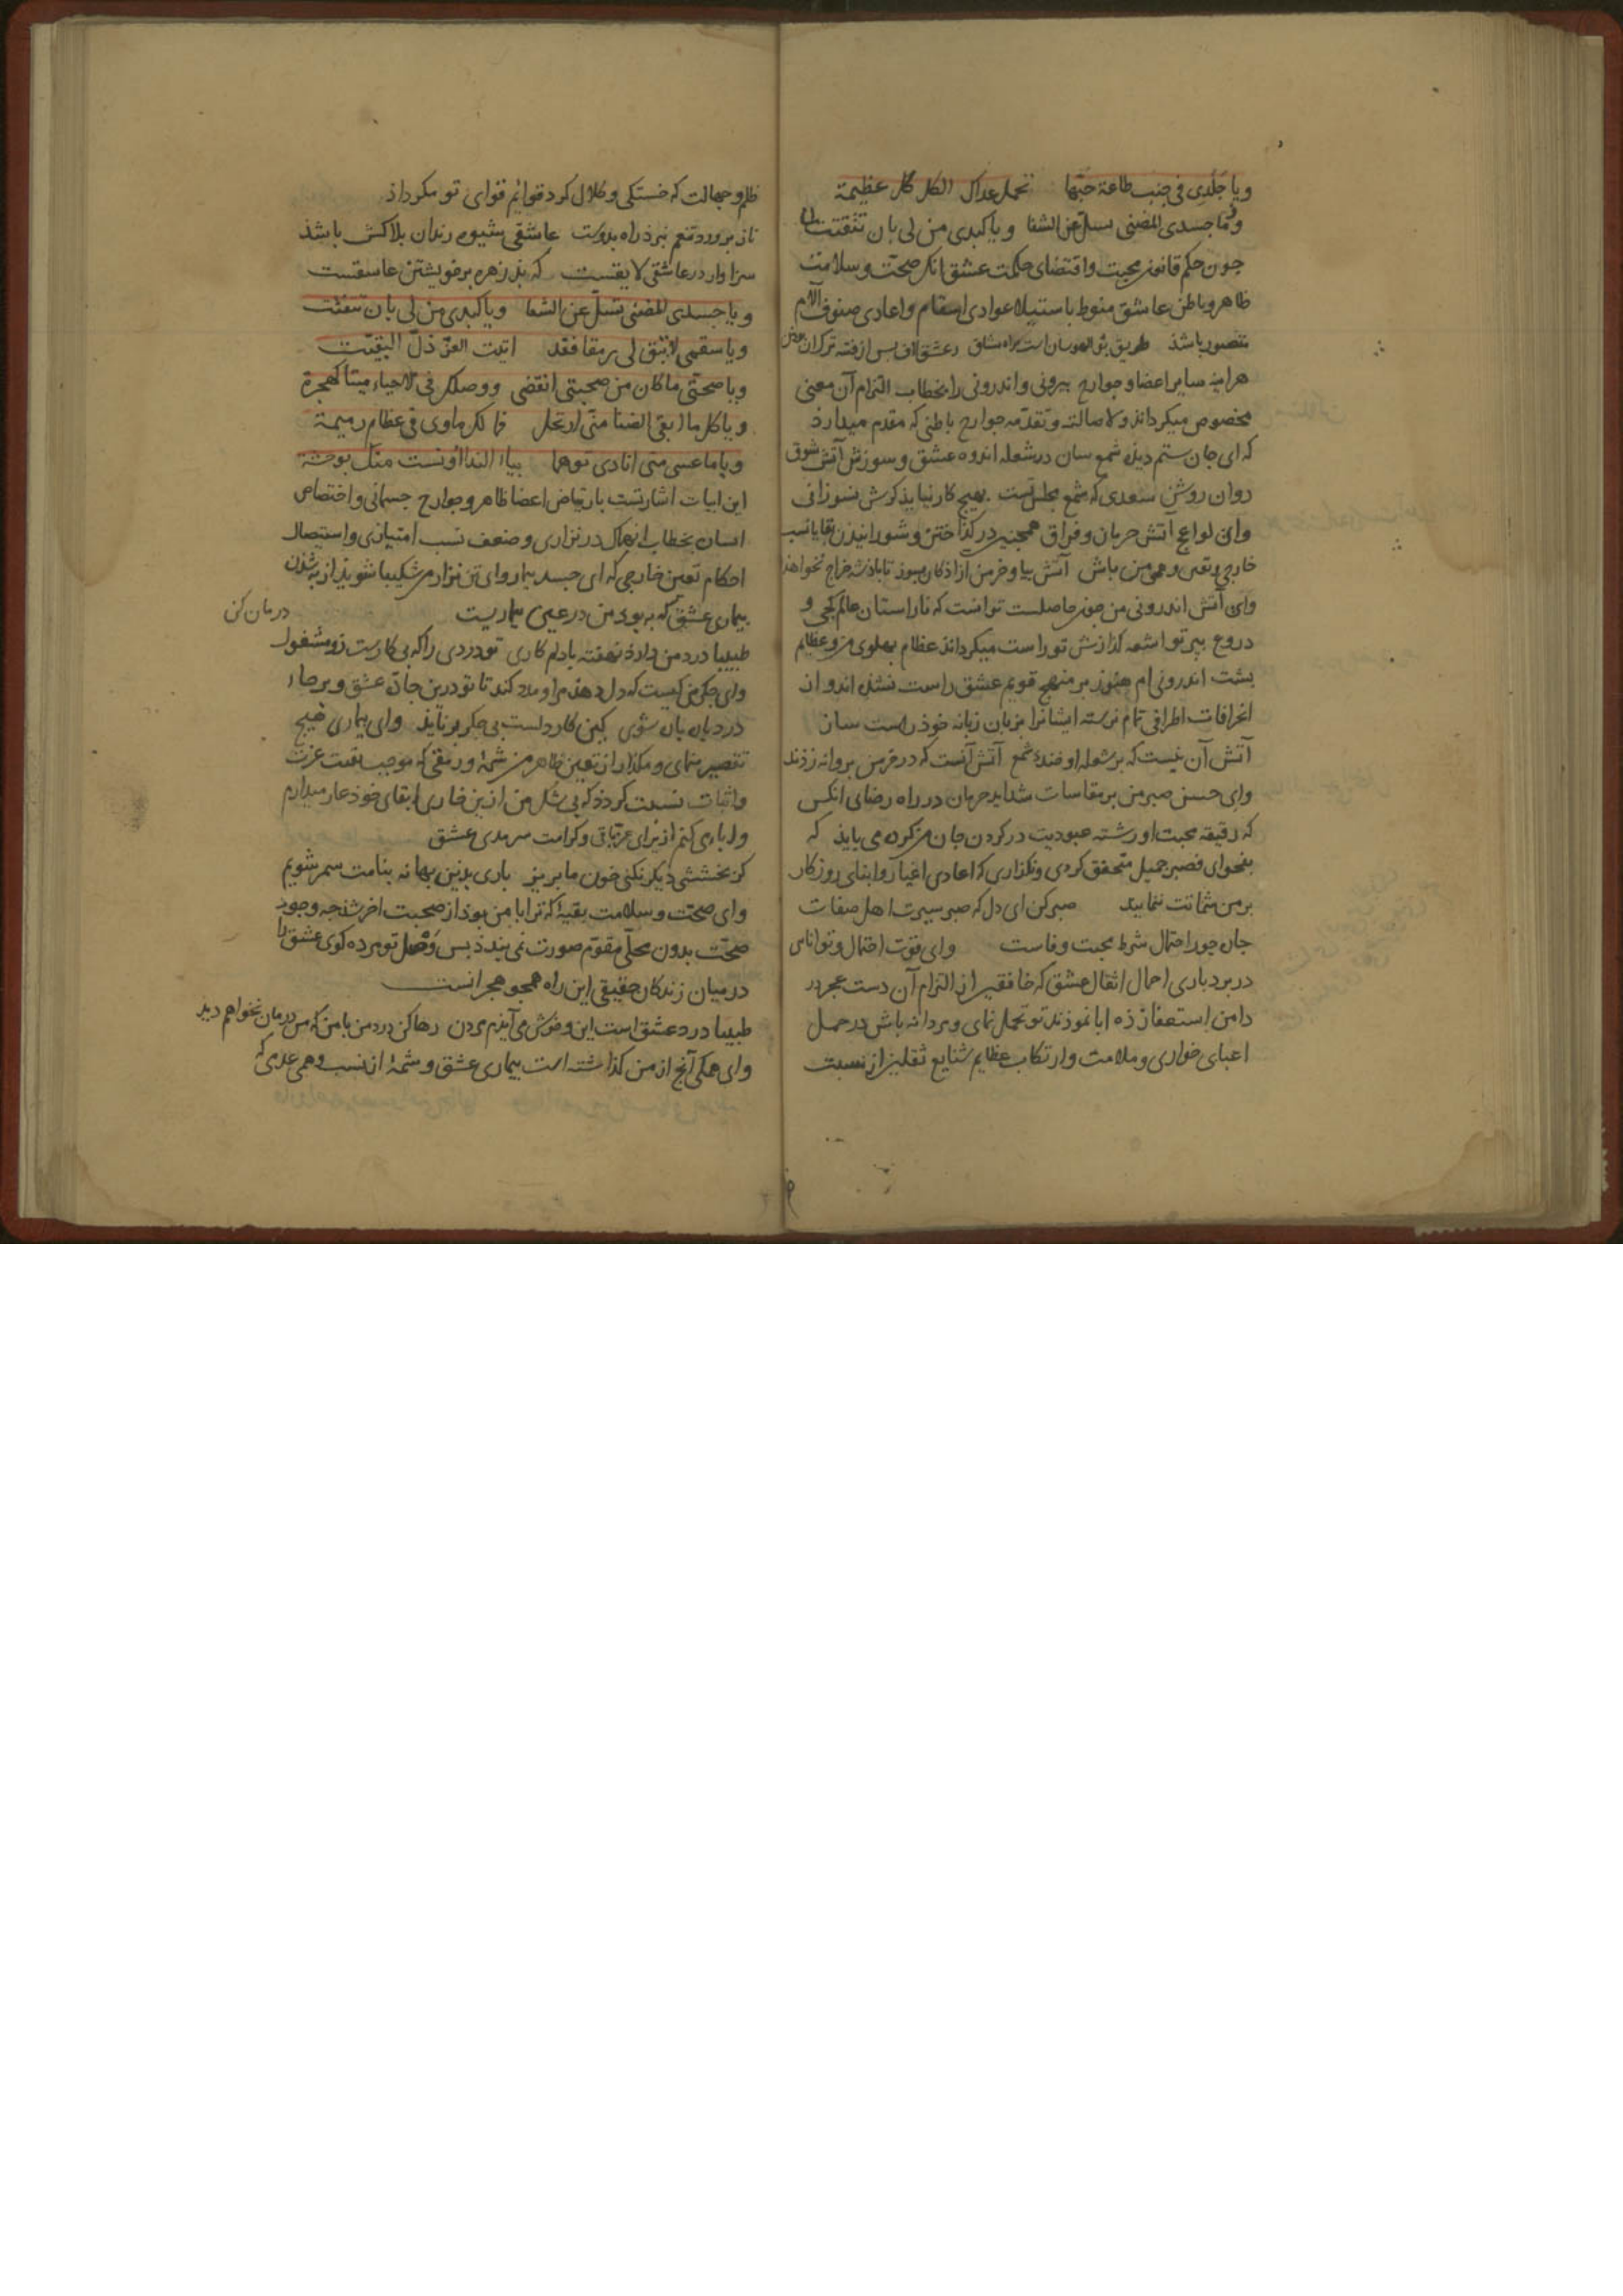 ویا جلدی فی جنب طاعة حبّها تحمل عداک الکل کل عظیمة
و یا جسدی المضنی تسلّ عن الشفا و یا کبدی من لی بان تتفتت
چون حکم قانون محبت و اقتضای حکمت عشق انکه صحّت و سلامت
ظاهر و باطن عاشق منوط باستیلاء عوادی اسقام و اعادی صنوف آلام
متصور باشد طریق
هراینه سایر اعضا و جوارح بیرونی و اندرونی را بخطاب التزام آن معنی
مخصوص میکرداند و لاصالته و تقدّمه جوارح باطنی که مقدم میدارد
که ای جان ستم دیده شمع سان در شعله اندوه عشق و سوزش آتش شوق
روان روشن سعدی که شمع مجلس تست بهیچ کار نیاید کرش نسوزانی
وای لواعج آتش حرمان و فراق همچنین در کداختن و شورانیدن بقایا نسب
خارجی و تعین وهمی من باش آتش بیا و خرمن ازاد کان بسوز تا باذشه خراج نخواهد
وای آتش اندرونی من چون حاصلست توانست که ناراستان عالم کجی و
دروغ بپرتو اشعه کدازش تو راست میکرداند عظام پهلوی من و عظایم
پشت اندرونی ام هنوز بر منهج قویم عشق راست نشده اند و از
انحرافات اطرافی تمام نرسته ایشانرا بزبان زبانه خوذ راست ساز
آتش آن نیست که بر شعله او خندد شمع آتش آنست که در خرمن پروانه زدند
وای حسن صبر من بر مقاسات شداید حرمان در راه رضای انکس
که رقیقه محبت او رشته عبودیت در کردن جان من کرده می باید که
بفحوای فصبر جمیل متحقق کردی و نکذاری که اعادی اغیار و ابنای روزکار
بر من شماتت نمایند صبر کن ای دل که صبر سیرت اهل صفات
جان جور احتمال شرط محبت وفاست وای قوّت احتمال و توانایی
در بردباری احمال اثقال عشق که خافقین از التزام آن دست عجز در
دامن استعفا زده ابا نموذند تو تحمل نمای و مردانه باش در حمل
اعبای خواری و ملامت و ارتکاب عظایم شنایع ثقلین از نسبت
ظلم و جهالت که خستکی و کلال کرد قوایم قوای تو مکرداذ
ناز پرورد تنعم نبرذ راه بدوست عاشقی شیوه رندان بلاکش باشد
سزاوار در عاشقی لایقست که بد زهره بر خویشتن عاشقست
و یا جسدی المضنی تسلّ عن الشفا و یا کبدی من لی بان تتفتت
و یا سقمی لا تبق لی رمقا فقد ابیت العزّ ذلّ البقیّت
و یا صحّتی ما کان من صحبتی انقضی و وصلک فی الاحیاء میتا کهجرة
و یا کل ما ابقی الضنا منّی ارتحل فما لک ماوی فی عظام رمیمة
و یا ما عسی منّی انادی توهما بیاء الندا اونست منک بوحشة
این ابیات اشارتست بارتیاض اعضا ظاهر و جوارح جسمانی و اختصاص
انسان بخطاب انهماک در نزاری و ضعف نسب امتیازی و استیصال
احکام تعین خارجی که ای جسد بیمار و ای تن نزار من شکیبا شوید از به شدن
بیماری عشق که به بود من در عین بیماریست
طبیبا درد من دارد نهفته با دلم کاری تو دردی را که بی کارست رو مشغول درمان کن
وای جکر من کیست که دل دهد مرا و مدد کند تا تو درین جان عشق و برجاء
درد پاره پاره شوی کین کار دلست بی جکر برناید وای بیماری هیچ
تقصیر منمای و مکذار از تعین ظاهر من شمه و رمقی که موجب بقیت عزت
و اثبات نسبت کردد که بی شک من از بهر خاری ابقای خود عار میدارم
و ابا می کنم از برای عز باقی و کرامت سرمدی عشق
کر بخششی دیکر نکنی خون ما بریز باری بدین بهانه بنامت سمر شویم
وای صحّت و سلامت بقیه که ترا با من بود از صحبت اخر شد چه وجود
صحّت بدون محلّی مقوّم صورت نمی بندد پس وصل تو مرده کوی عشق را
در میان زندکان حقیقی این راه همچو هجرانست
طبیبا درد عشق است این و خوش می آیدم مردن رها کن درد من با من که من درمان نخواهم دید
وای هرکی آنچ از من کذاشته است بیماری عشق و شمه از نسب وهمی عدمی که